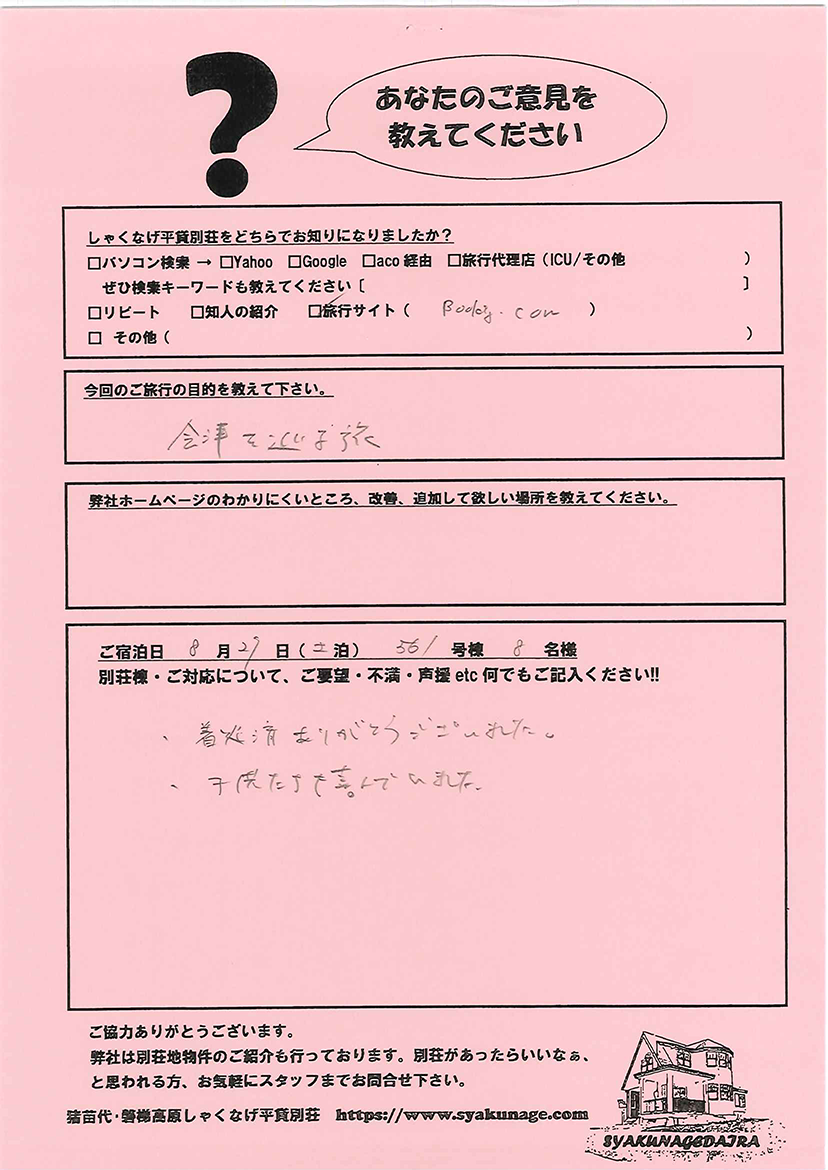 ?
あなたのご意見を
教えてください
しゃくなげ平貸別荘をどちらでお知りになりましたか？
□パソコン検索 → □Yahoo □Google □aco経由 □旅行代理店（ICU/その他　　　）
ぜひ検索キーワードも教えてください［　　　］
□リピート □知人の紹介 □旅行サイト（ Booking.com ）
□ その他（　　　）
今回のご旅行の目的を教えて下さい。
会津を巡る旅
弊社ホームページのわかりにくいところ、改善、追加して欲しい場所を教えてください。
ご宿泊日 8 月 29 日（土泊） 561 号棟 8 名様
別荘棟・ご対応について、ご要望・不満・声援 etc 何でもご記入ください!!
、 ありがとうございました。
、 子供たちも喜んでいました。
ご協力ありがとうございます。
弊社は別荘地物件のご紹介も行っております。別荘があったらいいなぁ、
と思われる方、お気軽にスタッフまでお問合せ下さい。
猪苗代・磐梯高原しゃくなげ平貸別荘 https://www.syakunage.com
SYAKUNAGEDAIRA